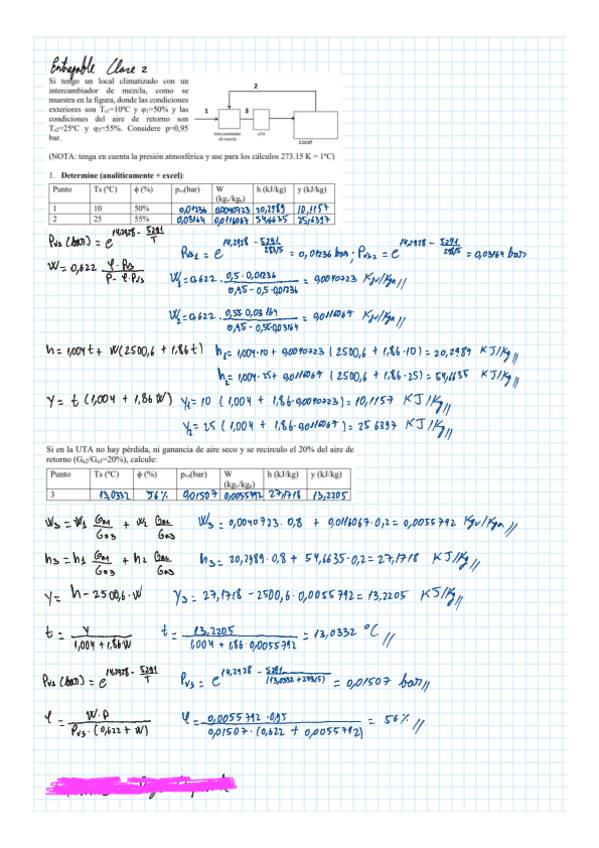 Entregable Clase 2
Si tengo un local climatizado con un
intercambiador de mezcla, como se
muestra en la figura, donde las condiciones
exteriores son Ts1=10ºC y φ1=50% y las
condiciones del aire de retorno son
Ts2=25ºC y φ2=55%. Considere p=0,95
bar.
2
1
3
Intercambiador
de mezcla
UTA
Local
(NOTA: tenga en cuenta la presión atmosférica y use para los cálculos 273.15 K = 1ºC)
1. Determine (analíticamente + excel):
Punto Ts (ºC) ϕ (%) pvs(bar) W (kgv/kga) h (kJ/kg) y (kJ/kg)
1 10 50% 0,01236 0,0040723 20,2989 10,1157
2 25 55% 0,03164 0,0116067 54,6635 25,6397
Pvs (bar) = e^(14,2928 - 5291/T)
Pvs1 = e^(14,2928 - 5291/283,15) = 0,01236 bar ; Pvs2 = e^(14,2928 - 5291/298,15) = 0,03164 bar
W = 0,622 · φ·Pvs / (P - φ·Pvs)
W1 = 0,622 · 0,5·0,01236 / (0,95 - 0,5·0,01236) = 0,0040723 Kgv/Kga //
W2 = 0,622 · 0,55·0,03164 / (0,95 - 0,55·0,03164) = 0,0116067 Kgv/Kga //
h = 1,004t + W(2500,6 + 1,86t) h1 = 1,004·10 + 0,0040723 (2500,6 + 1,86·10) = 20,2989 KJ/Kg //
h2 = 1,004·25 + 0,0116067 (2500,6 + 1,86·25) = 54,6635 KJ/Kg //
Y = t (1,004 + 1,86W) Y1 = 10 (1,004 + 1,86·0,0040723) = 10,1157 KJ/Kg //
Y2 = 25 (1,004 + 1,86·0,0116067) = 25,6397 KJ/Kg //
Si en la UTA no hay pérdida, ni ganancia de aire seco y se recirculo el 20% del aire de
retorno (Ga2/Ga3=20%), calcule:
Punto Ts (ºC) ϕ (%) pvs(bar) W (kgv/kga) h (kJ/kg) y (kJ/kg)
3 13,0332 56% 0,01507 0,0055792 27,1718 13,2205
W3 = W1 Ga1/Ga3 + W2 Ga2/Ga3 W3 = 0,0040723·0,8 + 0,0116067·0,2 = 0,0055792 Kgv/Kga //
h3 = h1 Ga1/Ga3 + h2 Ga2/Ga3 h3 = 20,2989·0,8 + 54,6635·0,2 = 27,1718 KJ/Kg //
Y = h - 2500,6·W Y3 = 27,1718 - 2500,6·0,0055792 = 13,2205 KJ/Kg //
t = Y / (1,004 + 1,86W) t = 13,2205 / (1,004 + 1,86·0,0055792) = 13,0332 ºC //
Pvs (bar) = e^(14,2928 - 5291/T) Pvs = e^(14,2928 - 5291/(13,0332 + 273,15)) = 0,01507 bar //
φ = W·P / (Pvs·(0,622 + W)) φ = 0,0055792·0,95 / (0,01507·(0,622 + 0,0055792)) = 56% //